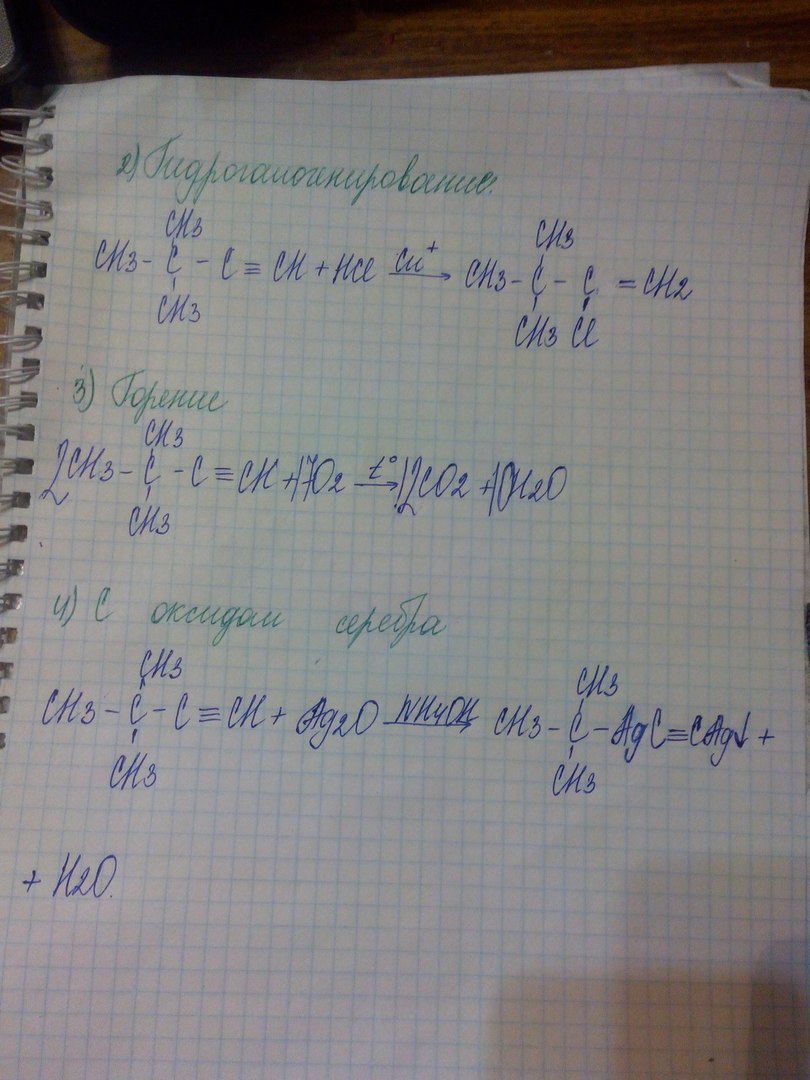 2) Гидрогалогенирование.
CH3
CH3 - C - C ≡ CH + HCl Cu+ → CH3 - C - C = CH2
CH3
CH3
CH3 Cl
3) Горение
CH3
2CH3 - C - C ≡ CH + 17O2 t° → 12CO2 + 10H2O
CH3
4) С оксидом серебра
CH3
CH3
CH3 - C - C ≡ CH + Ag2O NH4OH → CH3 - C - AgC ≡ CAg↓ +
CH3
CH3
+ H2O.